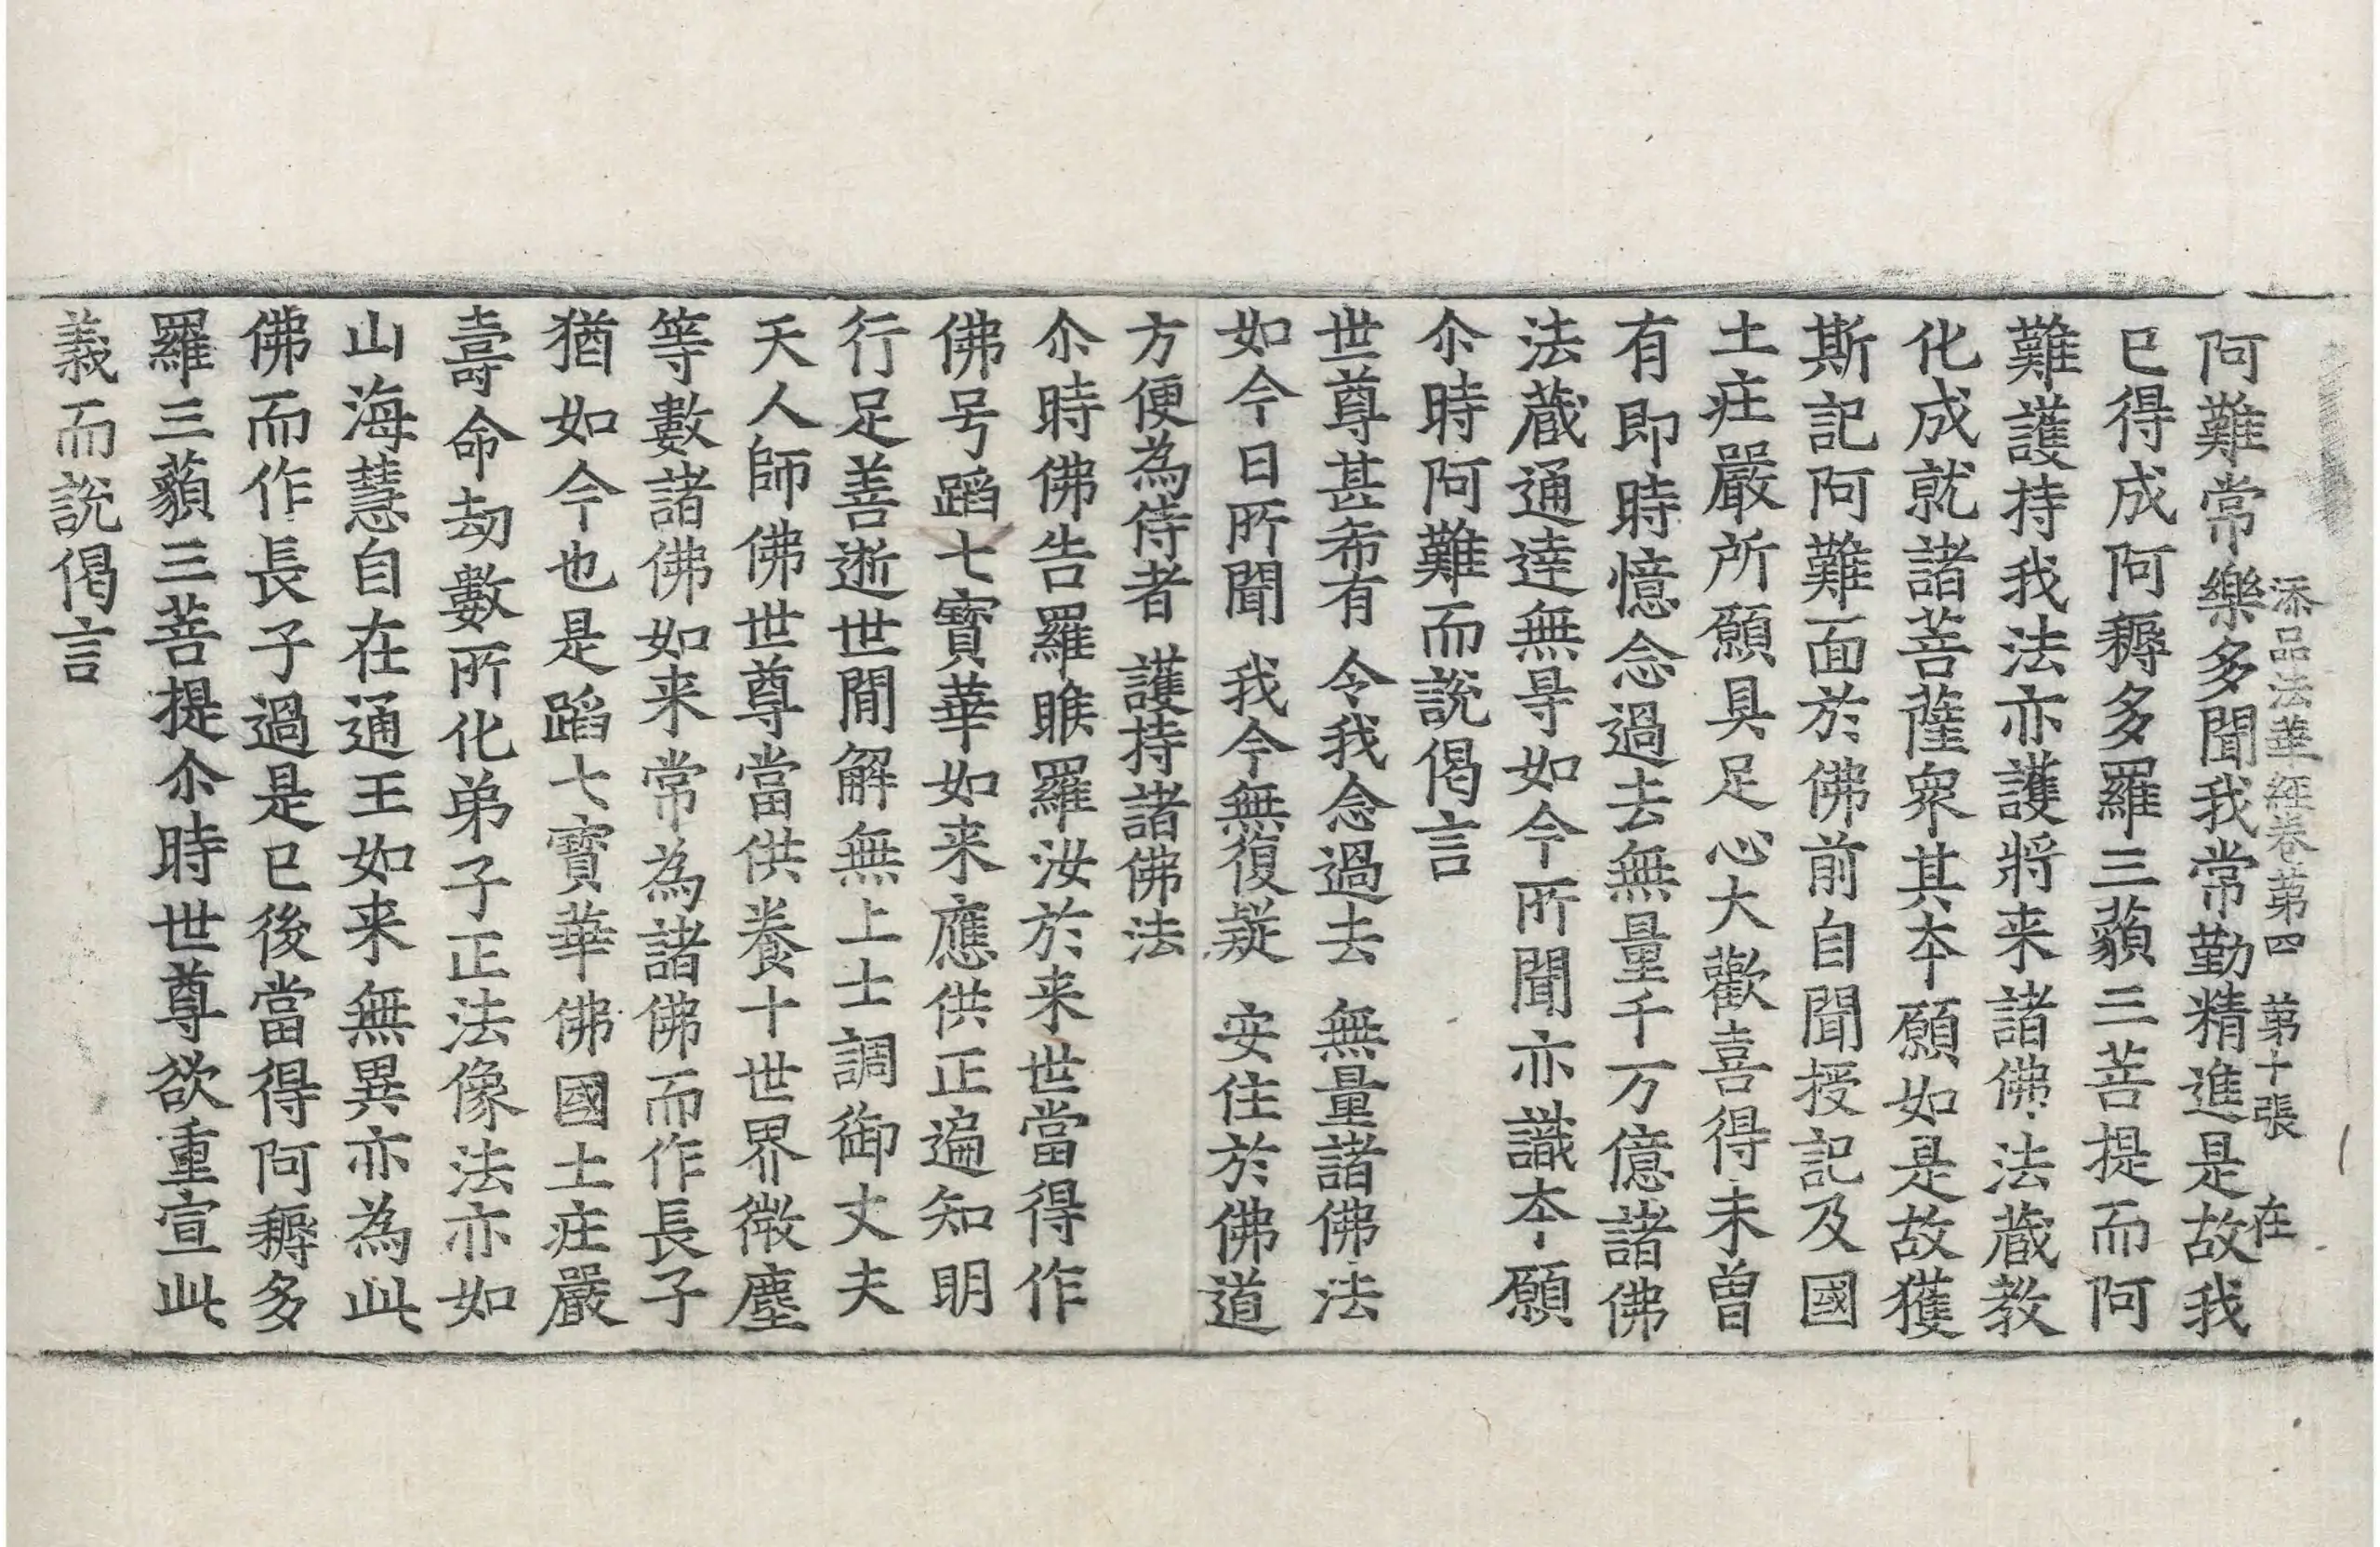 添品法華經卷第四 第十張 在
阿難常樂多聞我常勤精進是故我
已得成阿耨多羅三藐三菩提而阿
難護持我法亦護將来諸佛法蔵教
化成就諸菩薩衆其夲願如是故獲
斯記阿難面於佛前自聞授記及國
土庄嚴所願具足心大歡喜得未曽
有即時憶念過去無量千万億諸佛
法蔵通達無㝵如今所聞亦識夲願
尒時阿難而說偈言
世尊甚希有 令我念過去 無量諸佛法
如今日所聞 我今無復疑 安住於佛道
方便為侍者 護持諸佛法
尒時佛告羅睺羅汝於来世當得作
佛号蹈七寶華如来應供正遍知明
行足善逝世閒解無上士調御丈夫
天人師佛世尊當供養十世界微塵
等數諸佛如来常為諸佛而作長子
猶如今也是蹈七寶華佛國土庄嚴
壽命劫數所化弟子正法像法亦如
山海慧自在通王如来無異亦為此
佛而作長子過是已後當得阿耨多
羅三藐三菩提尒時世尊欲重宣此
義而說偈言